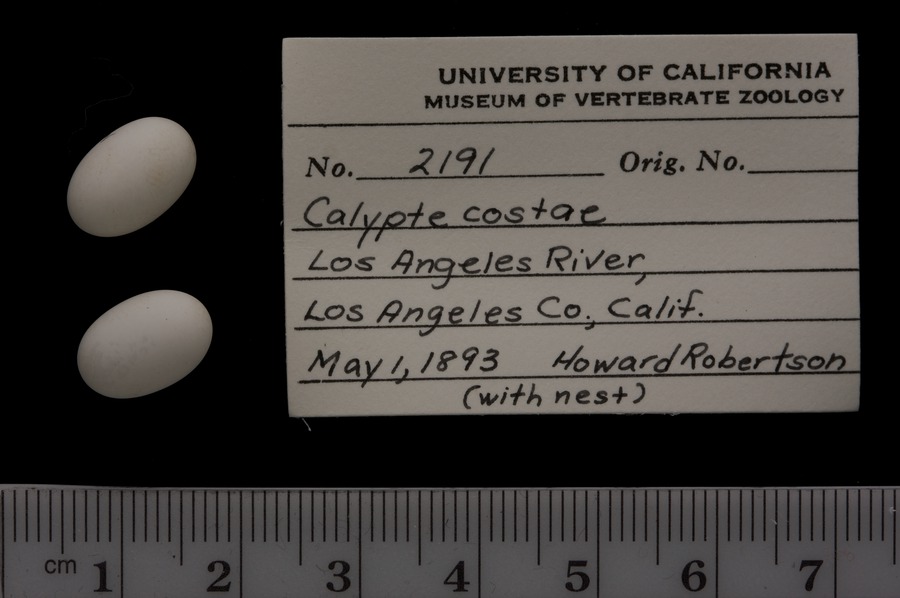 UNIVERSITY OF CALIFORNIA
MUSEUM OF VERTEBRATE ZOOLOGY
No. 2191 Orig. No.
Calypte costae
Los Angeles River,
Los Angeles Co., Calif.
May 1, 1893 Howard Robertson
(with nest)
cm 1 2 3 4 5 6 7